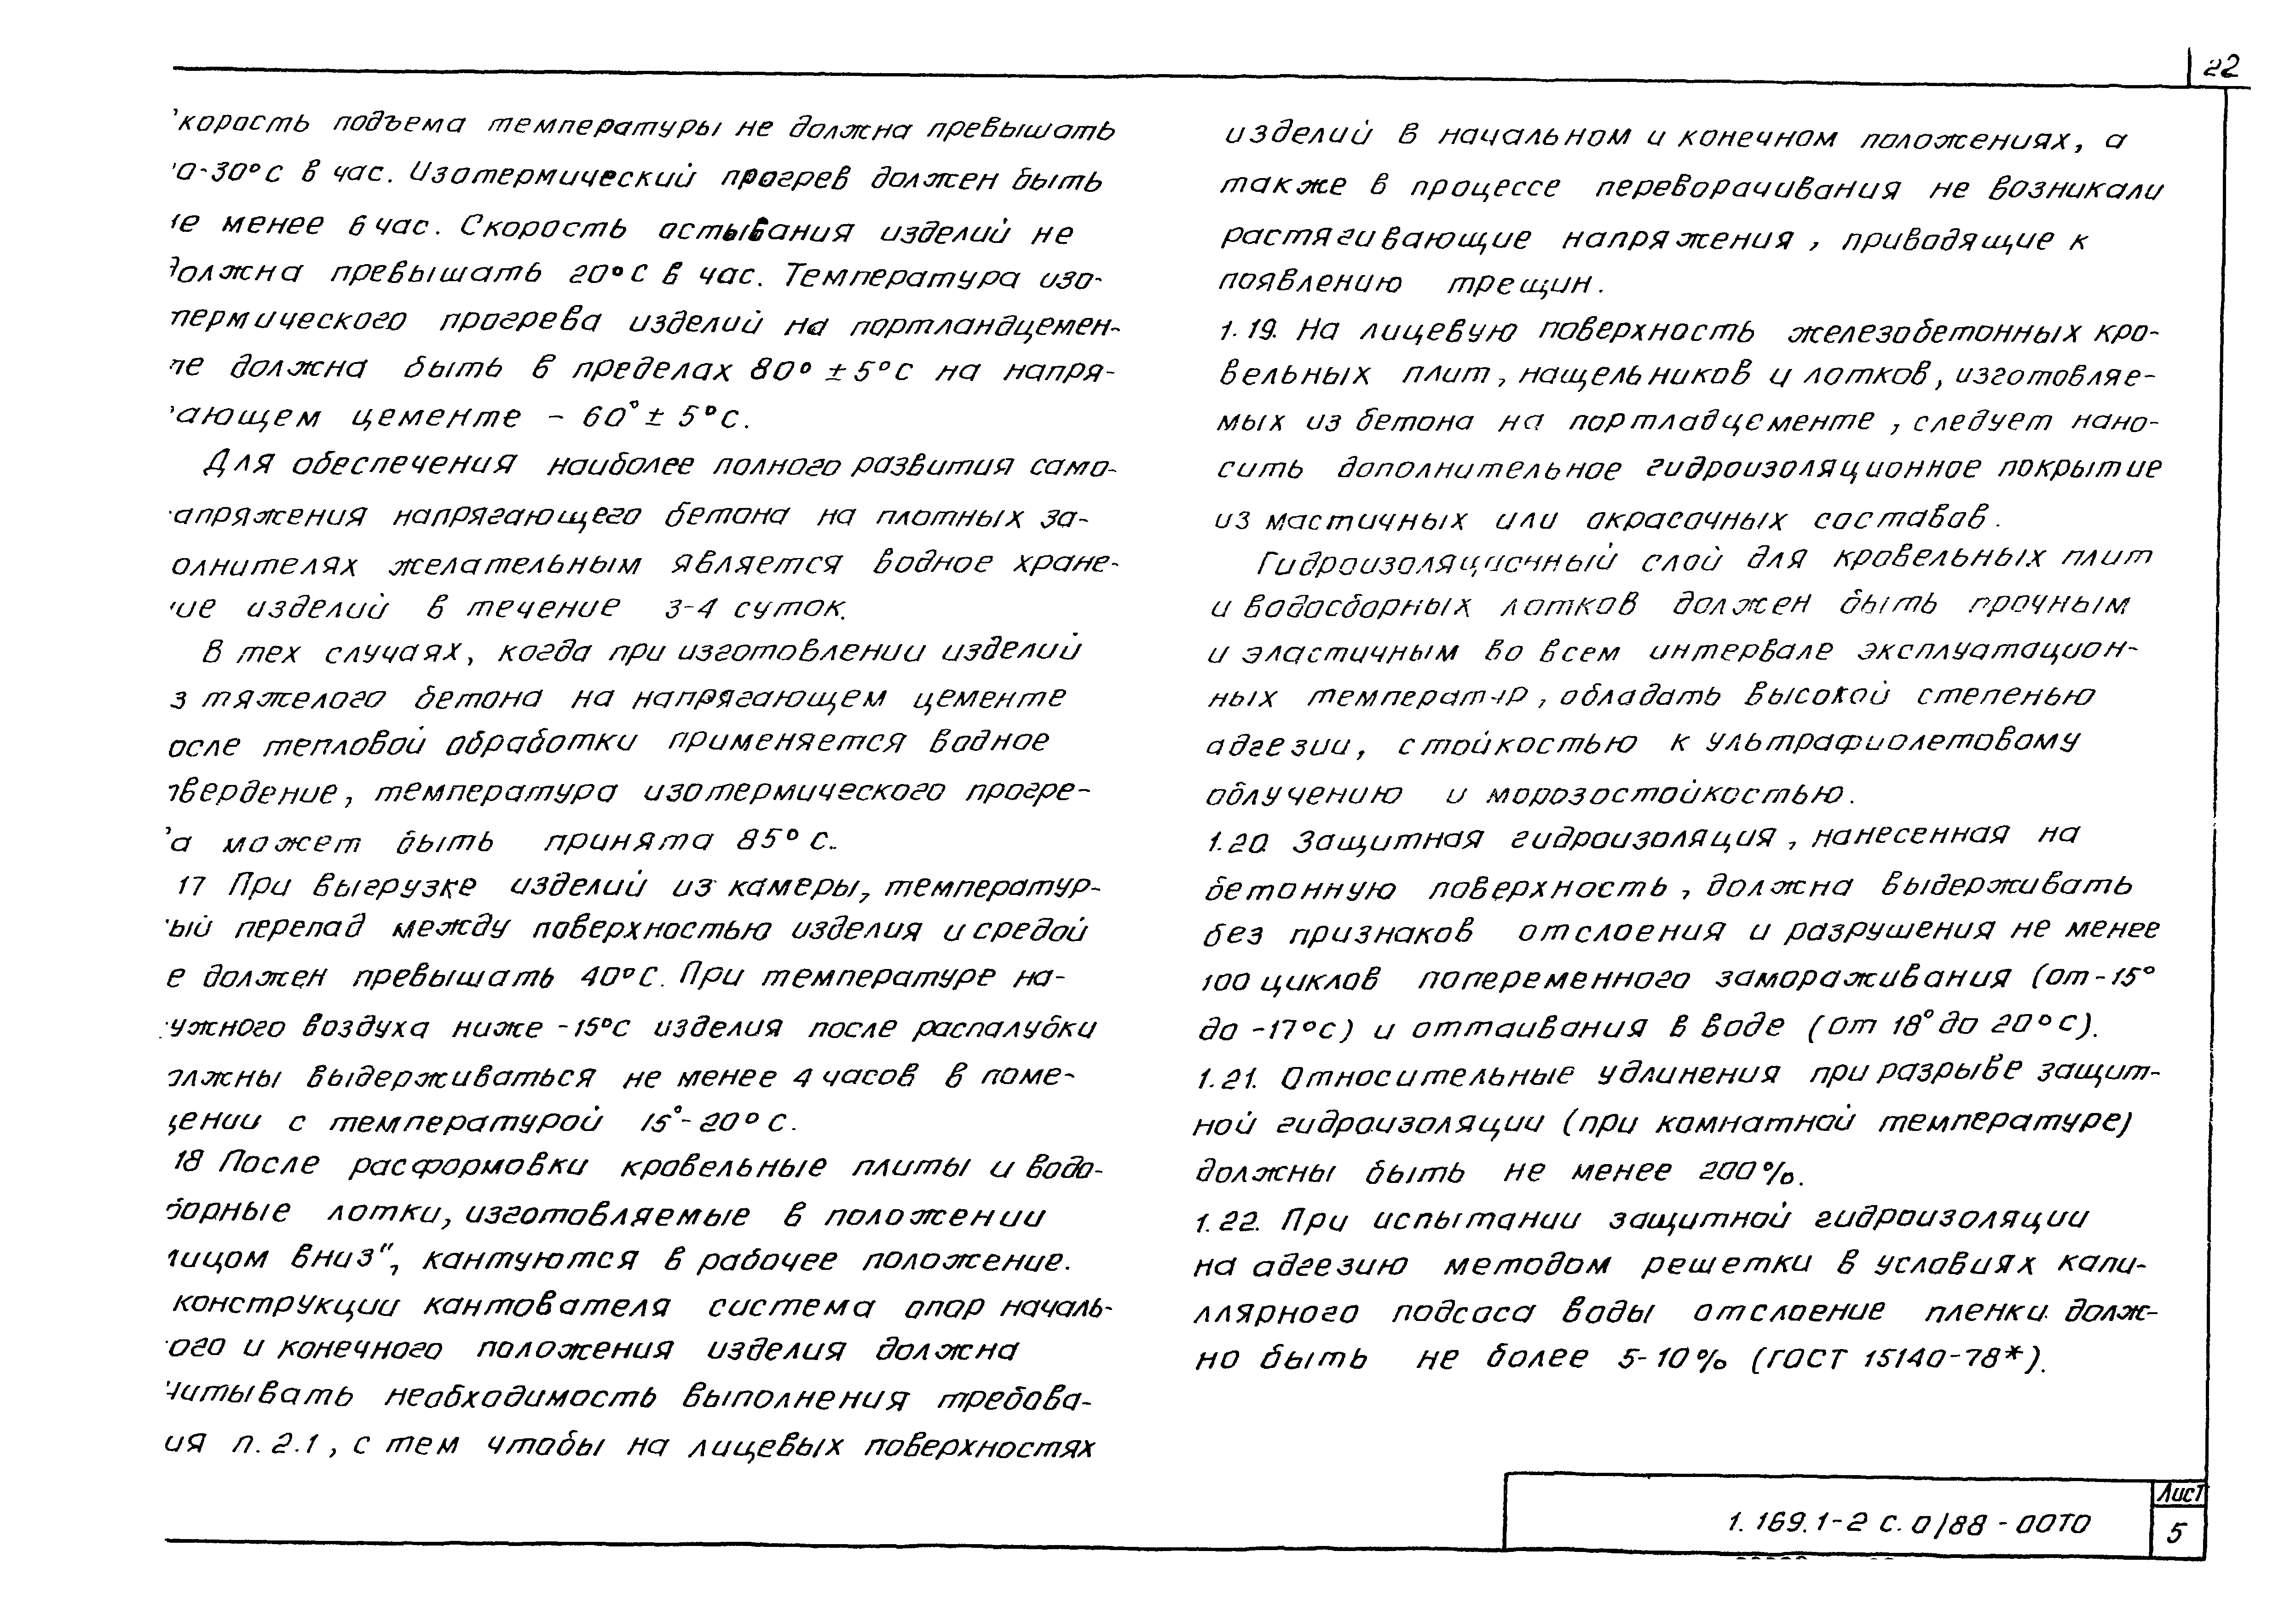 22
корость подъема температуры не должна превышать
0-30°С в час. Изотермический прогрев должен быть
е менее 6 час. Скорость остывания изделий не
должна превышать 20°С в час. Температура изо-
термического прогрева изделий на портландцемен-
те должна быть в пределах 80° ± 5°С на напря-
гающем цементе - 60° ± 5°С.
Для обеспечения наиболее полного развития само-
апряжения напрягающего бетона на плотных за-
олнителях желательным является водное хране-
ие изделий в течение 3-4 суток.
В тех случаях, когда при изготовлении изделий
з тяжелого бетона на напрягающем цементе
осле тепловой обработки применяется водное
твердение, температура изотермического прогре-
а может быть принята 85°С.
17 При выгрузке изделий из камеры, температур-
ый перепад между поверхностью изделия и средой
е должен превышать 40°С. При температуре на-
ужного воздуха ниже -15°С изделия после распалубки
олжны выдерживаться не менее 4 часов в поме-
щении с температурой 15°-20°С.
18 После расформовки кровельные плиты и водо-
борные лотки, изготовляемые в положении
лицом вниз", кантуются в рабочее положение.
конструкции кантователя система опор началь-
ого и конечного положения изделия должна
читывать необходимость выполнения требова-
ия п. 2.1, с тем чтобы на лицевых поверхностях
изделий в начальном и конечном положениях, а
также в процессе переворачивания не возникали
растягивающие напряжения, приводящие к
появлению трещин.
1.19. На лицевую поверхность железобетонных кро-
вельных плит, нащельников и лотков, изготовляе-
мых из бетона на портладцементе, следует нано-
сить дополнительное гидроизоляционное покрытие
из мастичных или окрасочных составов.
Гидроизоляционный слой для кровельных плит
и водосборных лотков должен быть прочным
и эластичным во всем интервале эксплуатацион-
ных температур, обладать высокой степенью
адгезии, стойкостью к ультрафиолетовому
облучению и морозостойкостью.
1.20 Защитная гидроизоляция, нанесенная на
бетонную поверхность, должна выдерживать
без признаков отслоения и разрушения не менее
100 циклов попеременного замораживания (от -15°
до -17°С) и оттаивания в воде (от 18° до 20°С).
1.21. Относительные удлинения при разрыве защит-
ной гидроизоляции (при комнатной температуре)
должны быть не менее 200%.
1.22. При испытании защитной гидроизоляции
на адгезию методом решетки в условиях капи-
ллярного подсоса воды отслоение пленки долж-
но быть не более 5-10% (ГОСТ 15140-78*).
1.169.1-2 с.0/88-00ТО
Лист
5